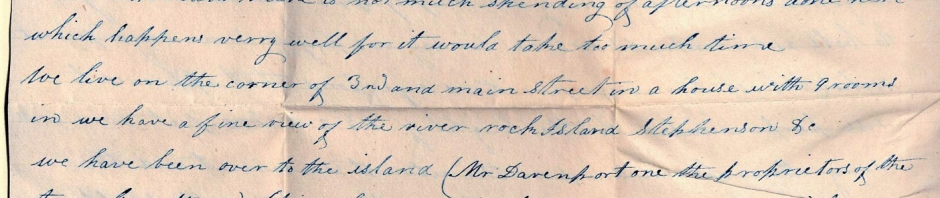 is not much spending of afternoons done here
which happens verry well for it would take too much time
We live on the corner of 3rd and main street in a house with 9 rooms
in we have a fine view of the river rock Island Stephenson &c
we have been over to the island (Mr Davenport one the proprietors of the